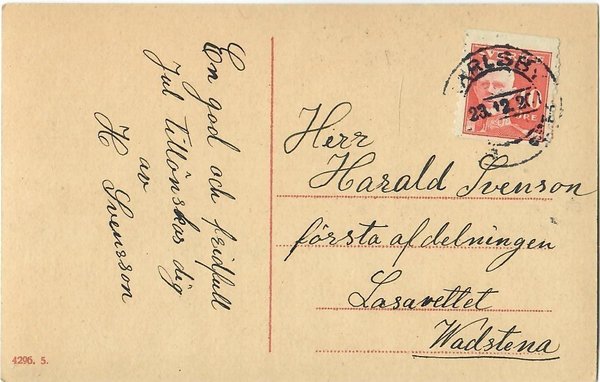 En god och fridfull
Jul tillönskas dig
av
H Svensson
ARLSB
23.12.20
ÖRE
Herr
Harald Svenson
första afdelningen
Lasarettet
Wadstena
4296. 5.